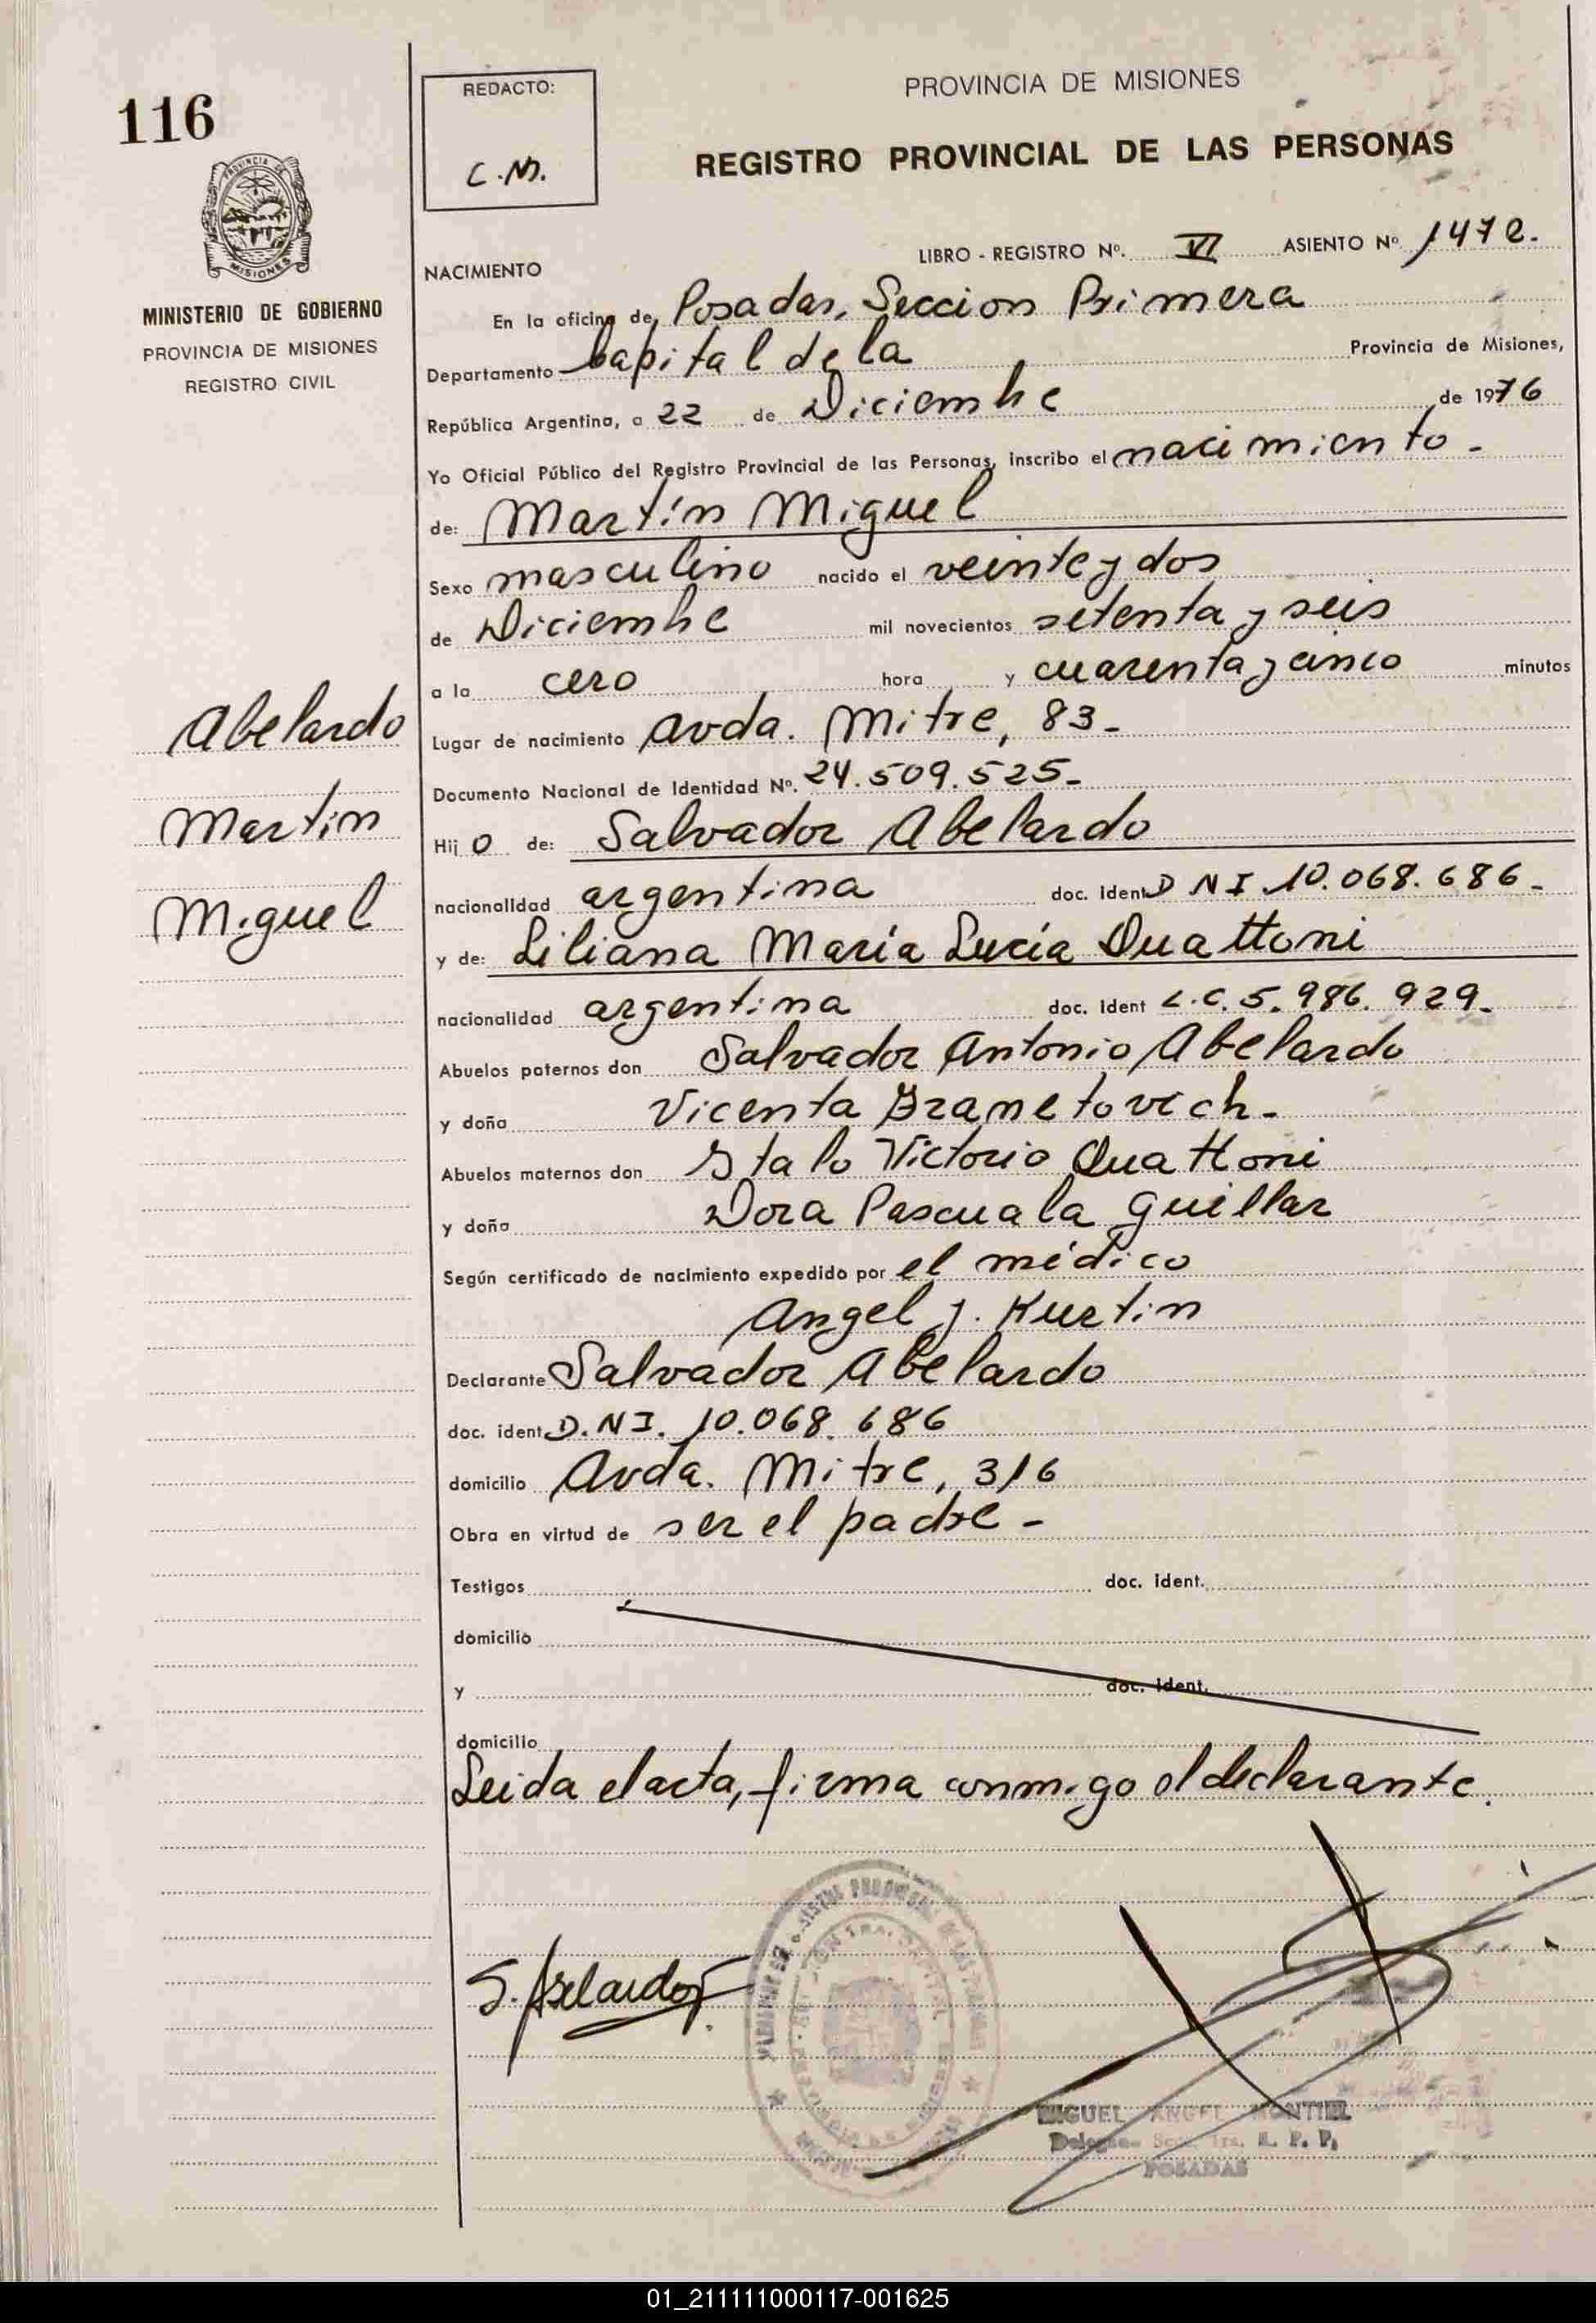 116
REDACTO:
C.M.
PROVINCIA DE MISIONES
REGISTRO PROVINCIAL DE LAS PERSONAS
PROVINCIA DE
MISIONES
MINISTERIO DE GOBIERNO
PROVINCIA DE MISIONES
REGISTRO CIVIL
LIBRO - REGISTRO Nº. VI ASIENTO Nº. 1472.
NACIMIENTO
En la oficina de Posadas, Seccion Primera
Departamento Capital de la Provincia de Misiones,
República Argentina, a 22 de Diciembre de 1976
Yo Oficial Público del Registro Provincial de las Personas, inscribo el nacimiento -
de: Martín Miguel
Sexo masculino nacido el veinte y dos
de Diciembre mil novecientos setenta y seis
a la cero hora y cuarenta y cinco minutos
Abelardo
Martín
Miguel
Lugar de nacimiento Avda. Mitre, 83-
Documento Nacional de Identidad Nº. 24.509.525-
Hij o de: Salvador Abelardo
nacionalidad argentina doc. ident D N I 10.068.686-
y de: Liliana María Lucía Quattoni
nacionalidad argentina doc. ident L.C. 5.986.929-
Abuelos paternos don Salvador Antonio Abelardo
y doña Vicenta
Abuelos maternos don Italo Victorio Quattoni
y doña Dora Pascuala Guillar
Según certificado de nacimiento expedido por el médico
Angel J. Kurtin
Declarante Salvador Abelardo
doc. ident D.N.I. 10.068.686
domicilio Avda. Mitre, 316
Obra en virtud de ser el padre -
Testigos doc. ident.
domicilio
y doc. ident.
domicilio
Leida el acta, firma conmigo el declarante.
S. Abelardo
MIGUEL ANGEL MONTIEL
R. P. P.
POSADAS
01_211111000117-001625